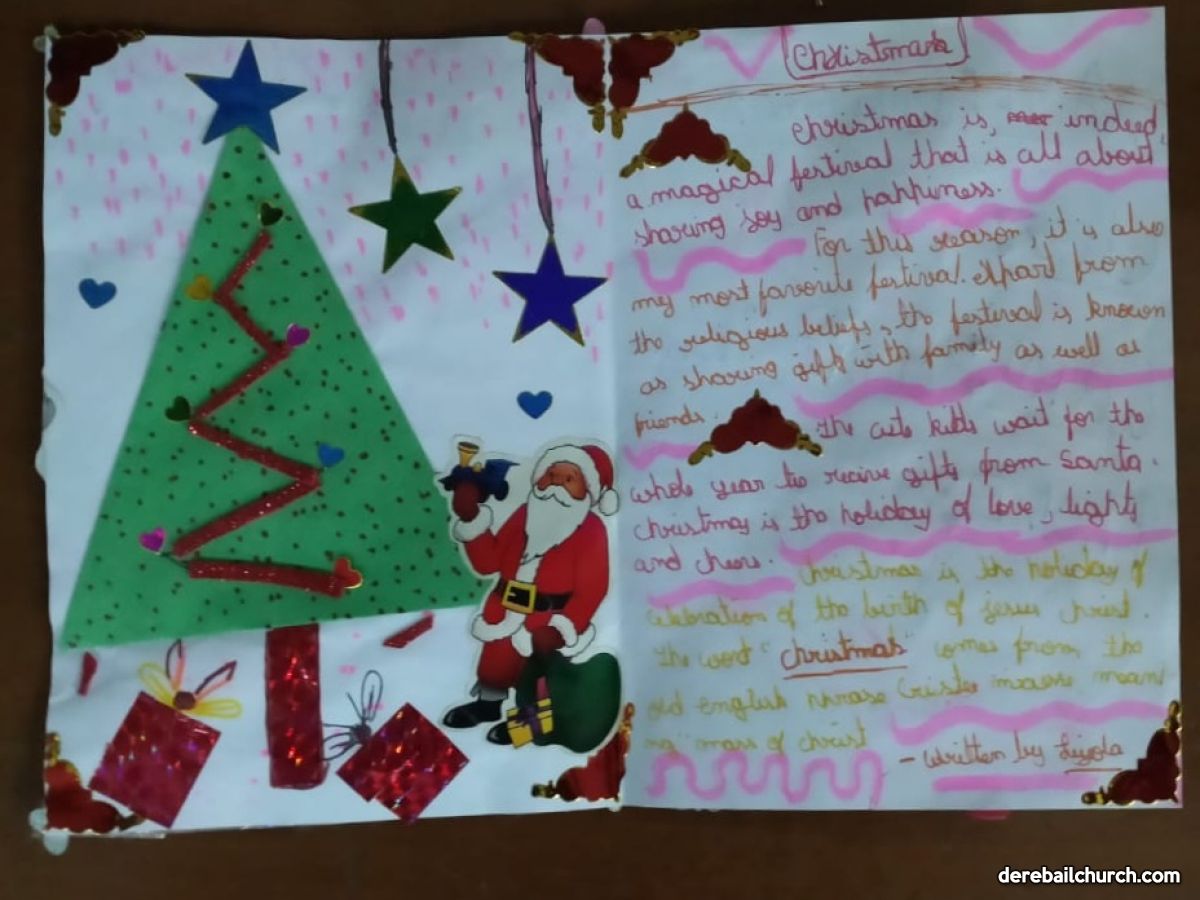 Christmas
christmas is, indeed,
a magical festival that is all about
sharing joy and happiness.
For this reason, it is also
my most favorite festival. Apart from
the religious beliefs, the festival is known
as sharing gifts with family as well as
friends.
the cute kids wait for the
whole year to recive gifts from Santa.
christmas is the holiday of love, lights
and cheers.
Christmas is the holiday of
celebration of the birth of jesus christ.
the word "christmas" comes from the
old english phrase Cristes maesse meani
ng "mass of christ
- written by Liyola
derebailchurch.com